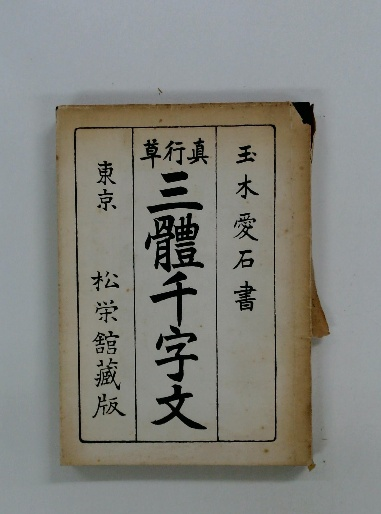 玉木愛石書
真行草
三體千字文
東京 松栄舘藏版